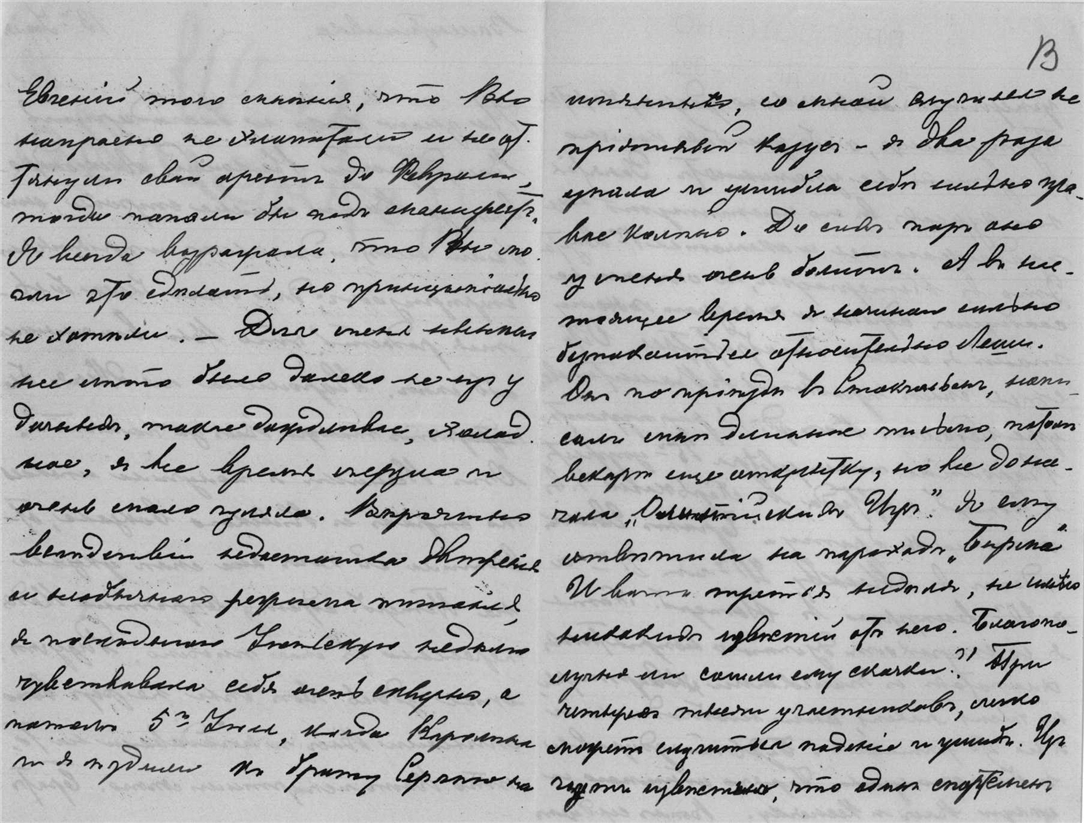 Евгеній того мнѣнія, что Вы
напрасно не хлопотали и не от-
тянули свой арестъ до Февраля,
тогда попали бы подъ манифестъ.
Я всегда возражала, что Вы мо-
гли это сдѣлать, но принципіально
не хотѣли. — Для меня нынѣшнее
лѣто было далеко не изъ у
дачныхъ, такое дождливое, холод
ное, я все время мерзла и
очень мало гуляла. Вѣроятно
вслѣдствіи недостатка движенія
и необычнаго режима питанія,
я послѣднюю Іюньскую недѣлю
чувствовала себя очень скверно, а
потомъ 5го Іюля, когда Каролина
и я ѣздили къ брату Сергѣю на
В
имянины, со мной случился не
пріятный казусъ — я два раза
упала и ушибла себѣ сильно пра-
вое колѣно. До сихъ поръ оно
у меня очень болитъ. А въ нас-
тоящее время я начинаю сильно
безпокоиться относительно Леши.
Онъ по пріѣздѣ въ Стокгольмъ, напи-
салъ мнѣ длинное письмо, потом
вскорѣ еще открытку, но все до на-
чала „Олимпійскихъ Игръ". Я ему
отвѣтила на пароходъ „Бирма"
И вотъ третья недѣля, не имѣю
никакихъ извѣстій отъ него. Благопо-
лучно ли сошли ему скачки?! При
четырехъ тысячи участниковъ, легко
можетъ случиться паденіе и ушибъ. Изъ
газетъ извѣстно, что одинъ спортсменъ